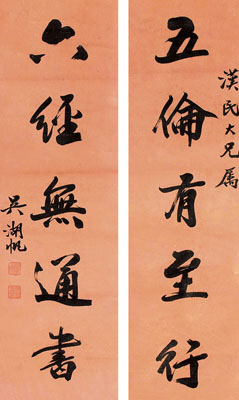 漢民大兄属
五倫有至行
六經無通書
吳湖帆